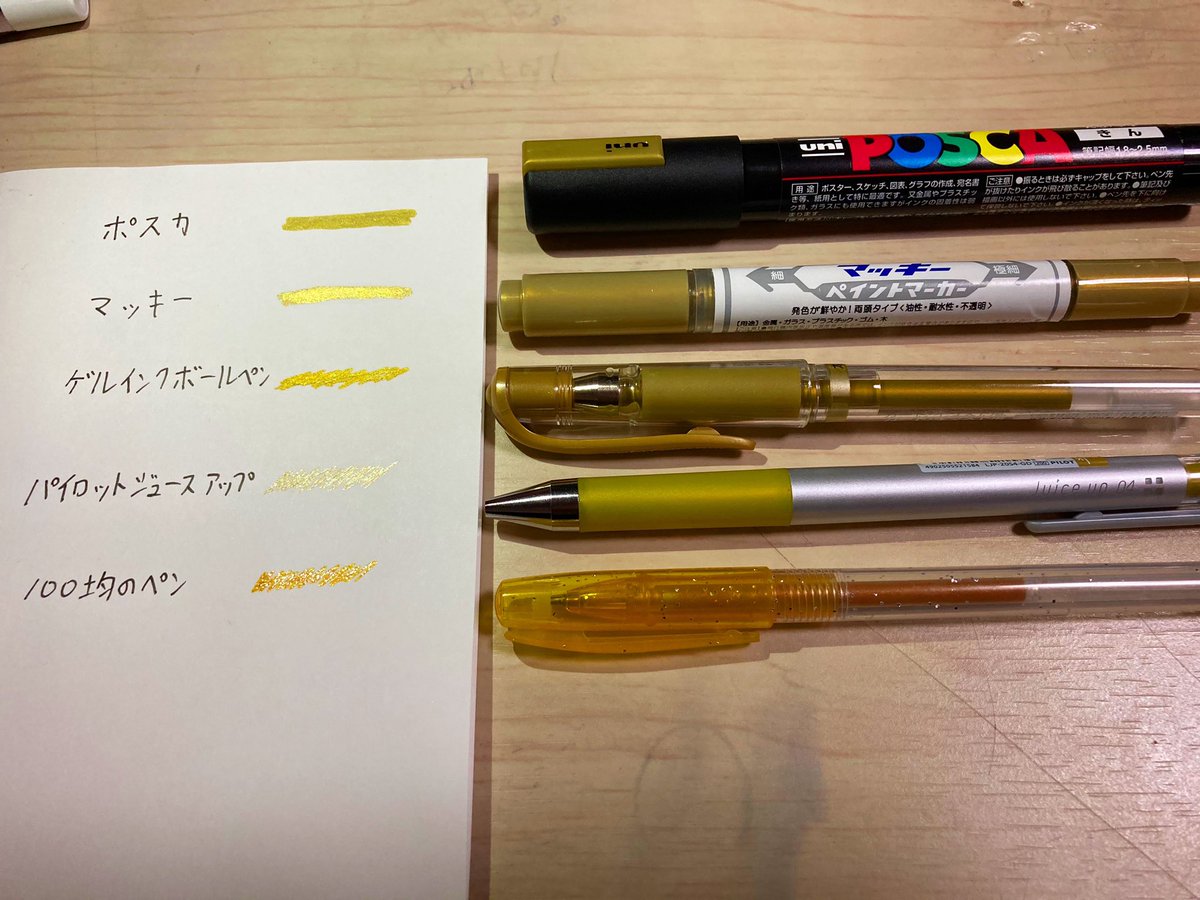 ポスカ
マッキー
ゲルインクボールペン
パイロットジュースアップ
100均のペン
uni
uni POSCA
きん
筆記幅1.8~2.5mm
用途 ポスター、スケッチ、図表、グラフの作成、宛名書
き等、紙用として特に最適です。又金属やプラスチッ
ク類、ガラスにも使用できますがインクの固着性は弱
まります。
ご注意 ●振るときは必ずキャップをして下さい。ペン先
が抜けたりインクが飛び散ることがあります。●筆記及び
描画以外には使用しないで下さい。●ペン先を下に向け
細 マッキー 極細
ペイントマーカー
発色が鮮やか!両頭タイプ<油性・耐水性・不透明>
【用途】金属・ガラス・プラスチック・ゴム・木
4902505521584 LJP-20S4-GD PILOT
Juice up 04